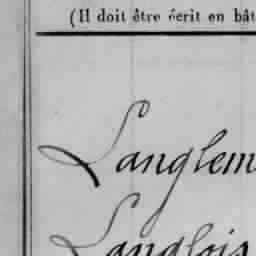 (Il doit être écrit en bât
Langlem
Langlois